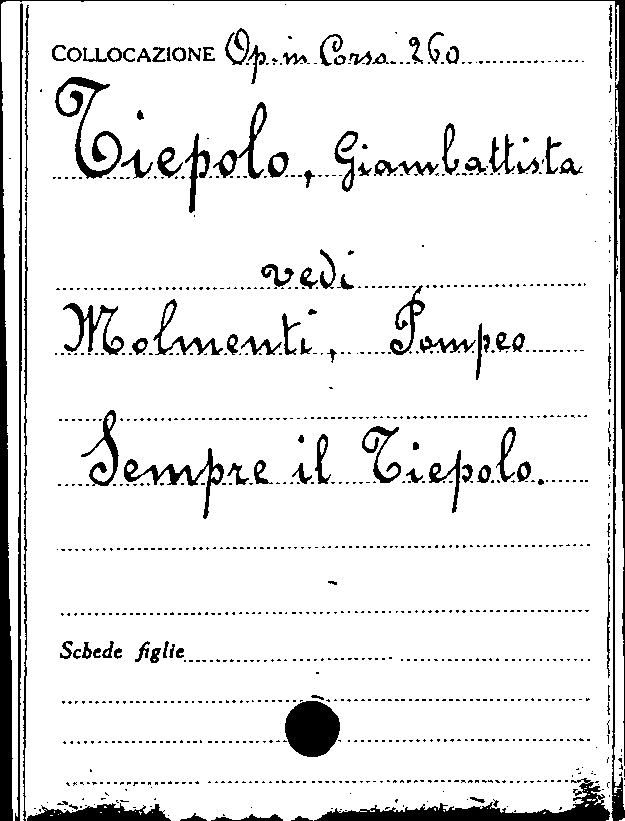 COLLOCAZIONE Op. in Corso 260
Tiepolo, Giambattista
vedi
Molmenti, Pompeo
Sempre il Tiepolo.
Schede figlie